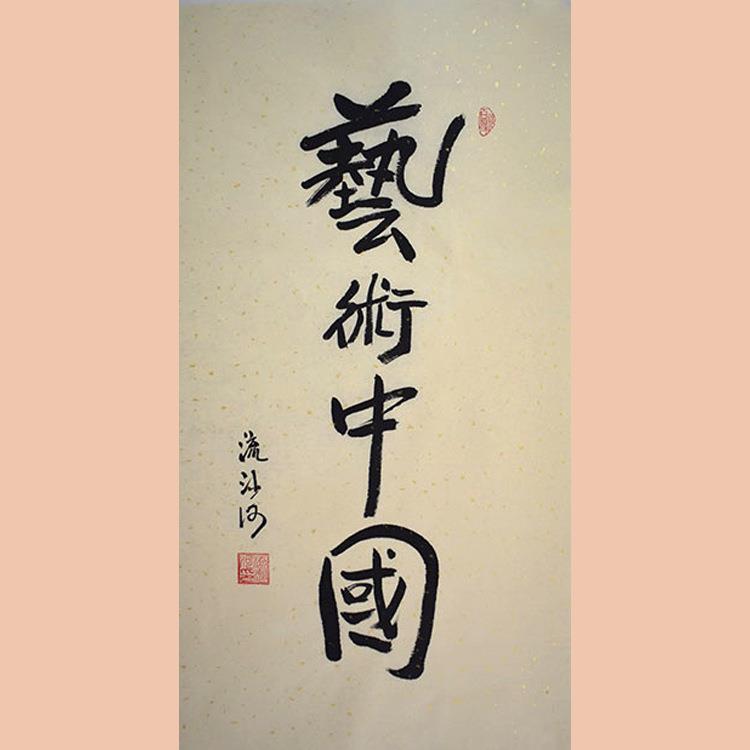 藝術中國
流沙河